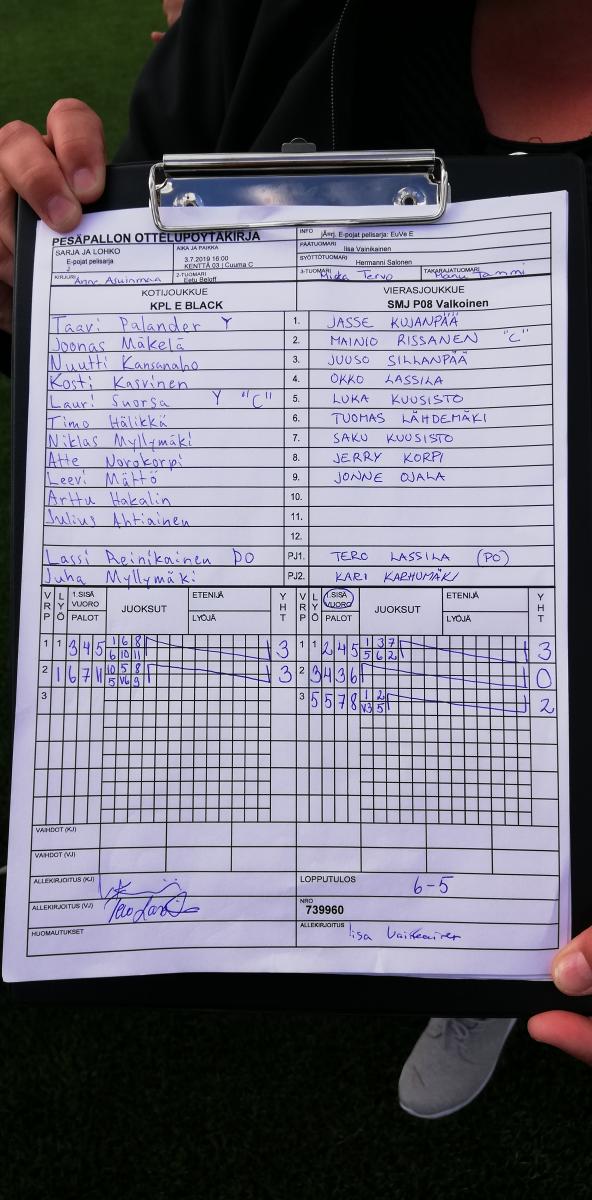 PESÄPALLON OTTELUPÖYTÄKIRJA
SARJA JA LOHKO
E-pojat pelisarja
AIKA JA PAIKKA
3.7.2019 16:00
KENTTÄ 03 | Cuuma C
KIRJURI
Anne Asuinmaa
2-TUOMARI
Eetu Beloff
INFO
E-pojat pelisarja: EuVe E
PÄÄTUOMARI
Iisa Vainikainen
SYÖTTÖTUOMARI
Hermanni Salonen
3-TUOMARI
Miska Tervo
TAKARAJATUOMARI
Manu Tammi
KOTIJOUKKUE
KPL E BLACK
VIERASJOUKKUE
SMJ P08 Valkoinen
Taavi Palander Y 1. JASSE KUJANPÄÄ
Joonas Mäkelä 2. MAINIO RISSANEN "C"
Nuutti Kansanaho 3. JUUSO SILLANPÄÄ
Kosti Kasvinen 4. OKKO LASSILA
Lauri Suorsa Y "C" 5. LUKA KUUSISTO
Timo Hälikkä 6. TUOMAS LÄHDEMÄKI
Niklas Myllymäki 7. SAKU KUUSISTO
Atte Norokorpi 8. JERRY KORPI
Leevi Mättö 9. JONNE OJALA
Arttu Hakalin 10.
Julius Ahtiainen 11.
12.
Lassi Reinikainen PO PJ1. TERO LASSILA (PO)
Juha Myllymäki PJ2. KARI KARHUMÄKI
VRP LYÖ 1.SISÄ VUORO PALOT JUOKSUT ETENIJÄ LYÖJÄ YHT VRP LYÖ 1.SISÄ VUORO PALOT JUOKSUT ETENIJÄ LYÖJÄ YHT
1 1 3 4 5 1 6 8 3 1 1 2 4 5 1 3 7 3
6 10 11 5 6 2
2 1 6 7 11 10 5 8 3 2 3 4 3 6 0
5 V6 9
3 3 5 5 7 8 1 2 2
V3 5
VAIHDOT (KJ)
VAIHDOT (VJ)
ALLEKIRJOITUS (KJ)
LOPPUTULOS 6-5
ALLEKIRJOITUS (VJ)
NRO
739960
HUOMAUTUKSET
ALLEKIRJOITUS Iisa Vainikainen